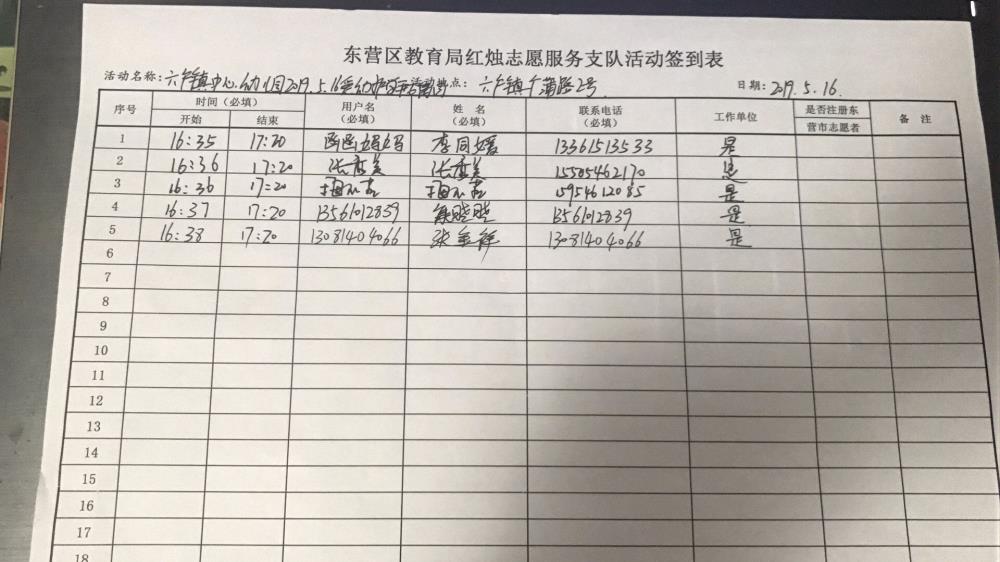 东营区教育局红烛志愿服务支队活动签到表
活动名称: 六户镇中心幼儿园2019.5.16 活动地点: 六户镇 蒲路2号 日期: 2019.5.16.
序号 时间（必填） 用户名（必填） 姓名（必填） 联系电话（必填） 工作单位 是否注册东营市志愿者 备注
开始 结束
1 16:35 17:20 李同媛 13361513533 是
2 16:36 17:20 张 美 张 美 15505462170 是
3 16:36 17:20 15954612085 是
4 16:37 17:20 13561012839 13561012839 是
5 16:38 17:20 13081404066 张 13081404066 是
6
7
8
9
10
11
12
13
14
15
16
17
18